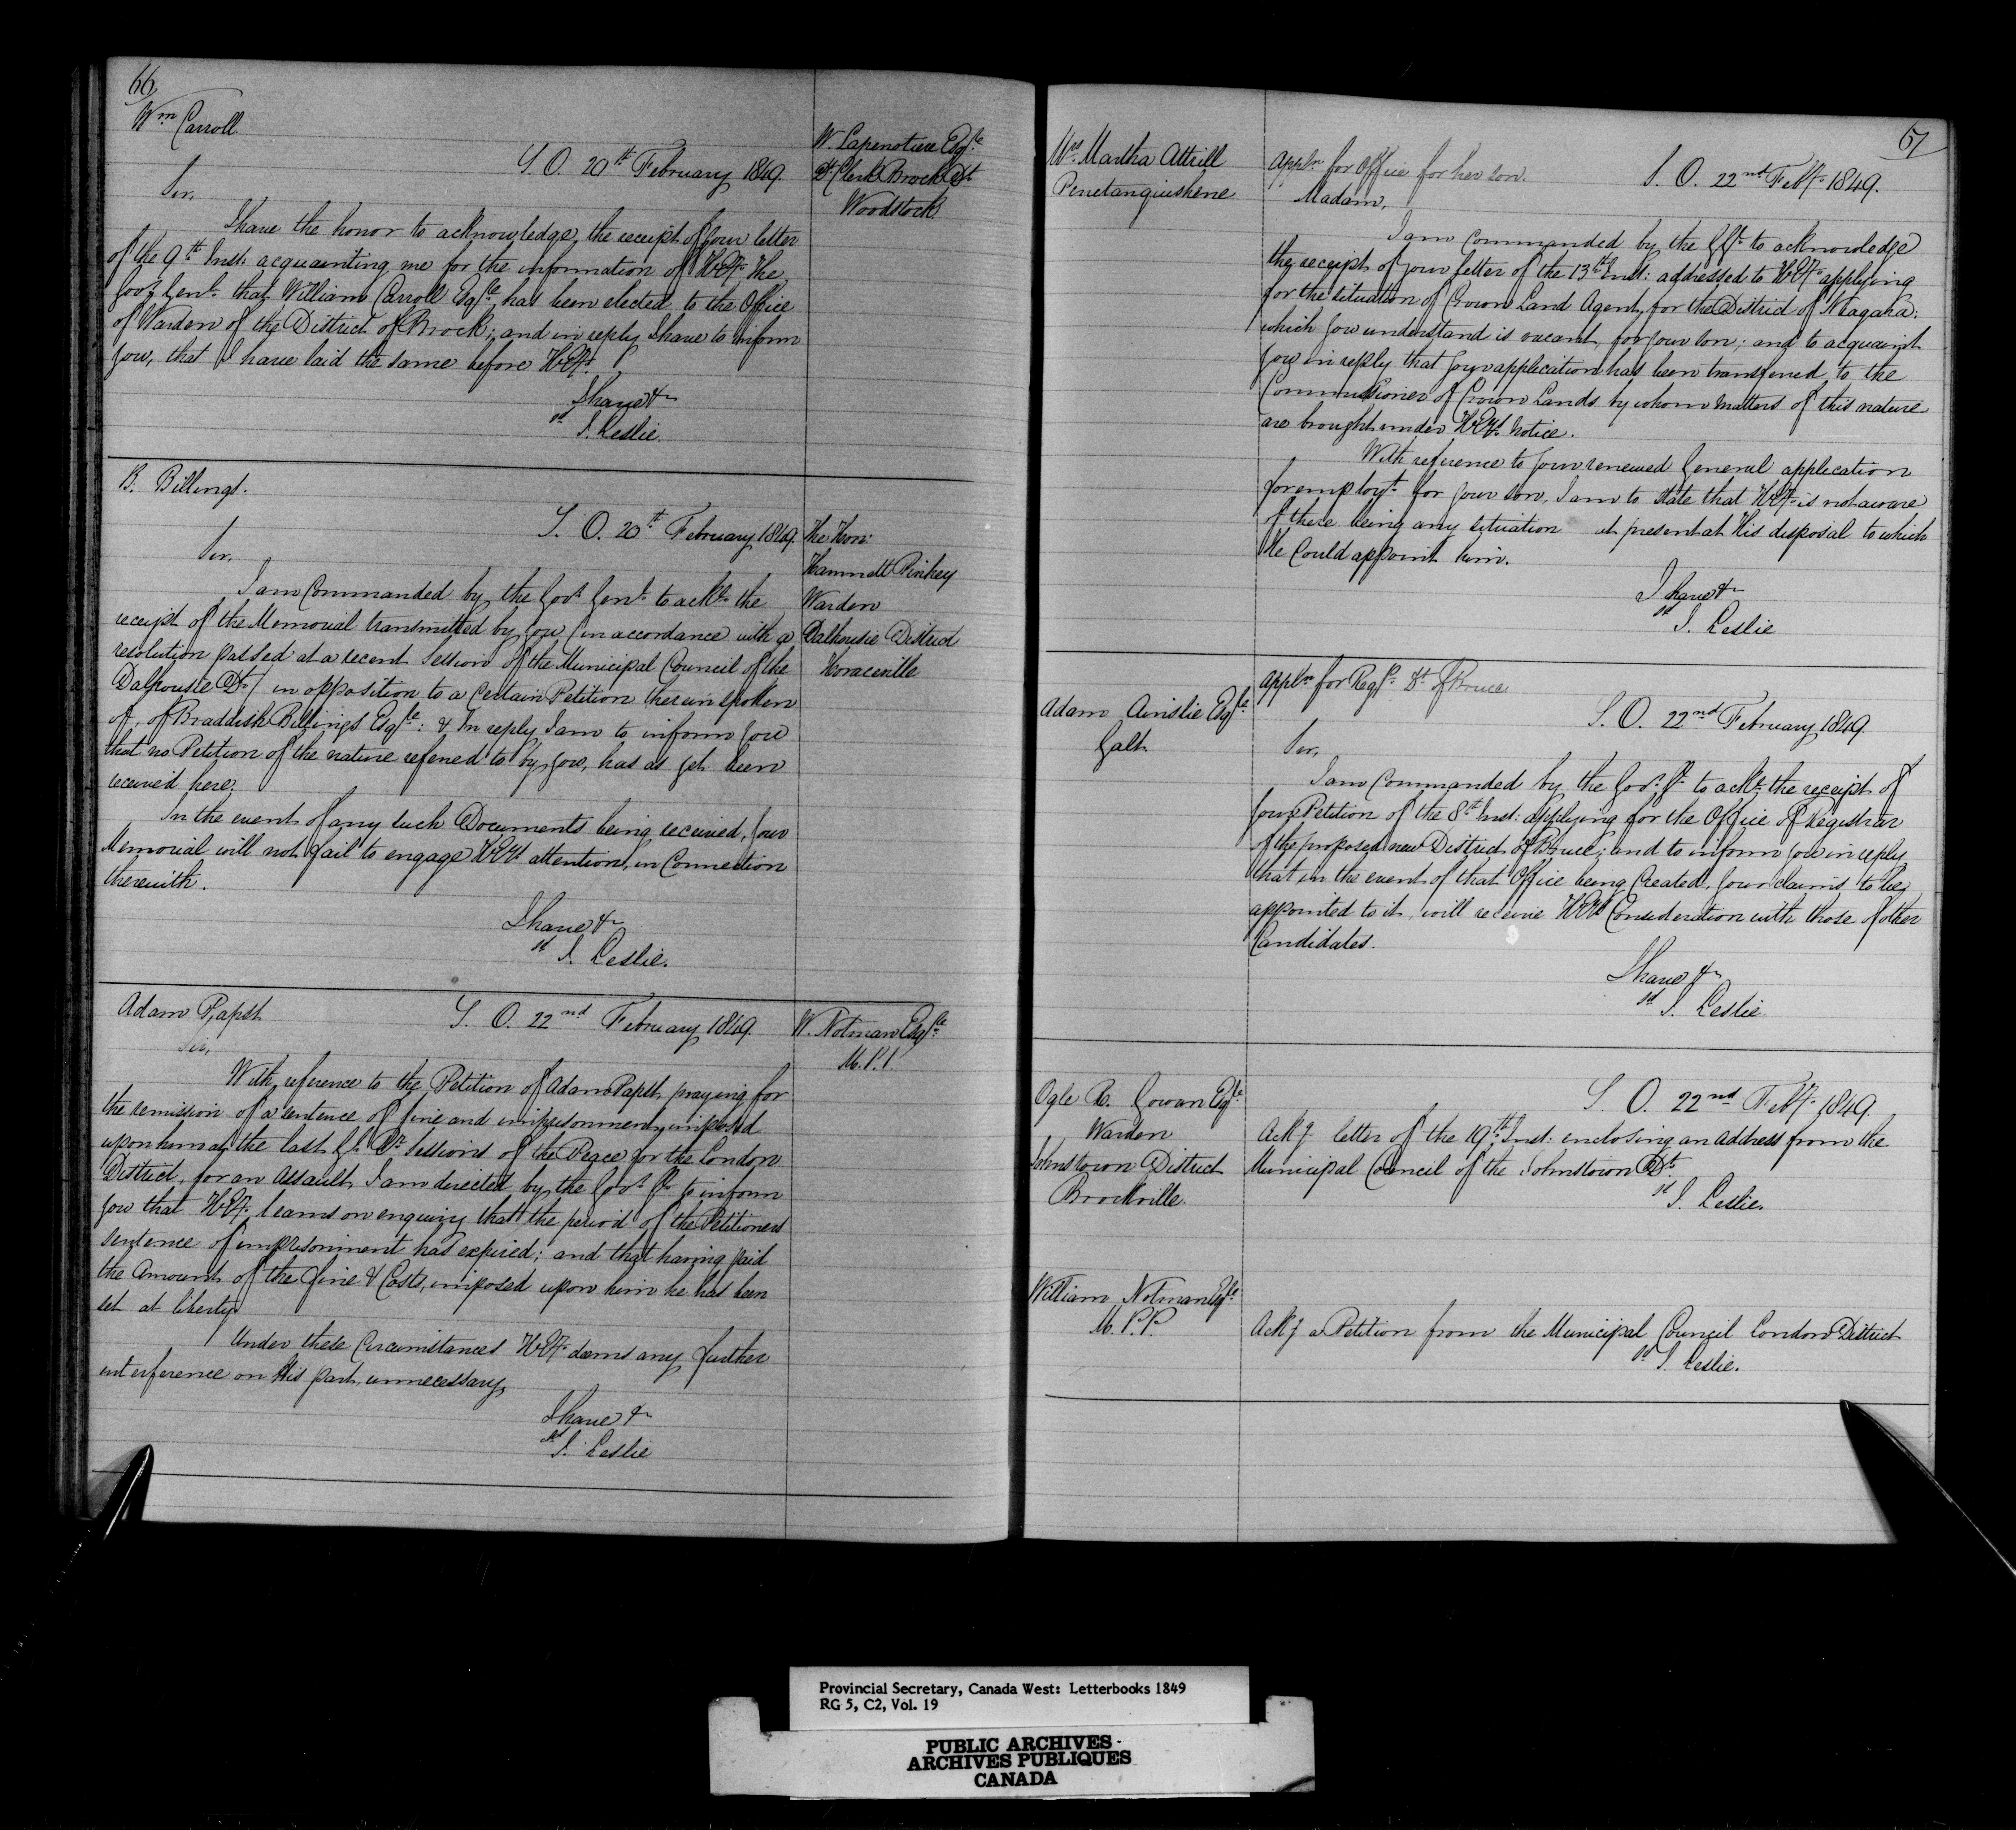 66
Wm Carroll
S. O. 20th February 1849.
W. Lapenotiere Esqre
Dt Clerk Brock Dt
Woodstock
Sir,
I have the honor to acknowledge the receipt of your letter
of the 9th Inst: acquainting me for the information of H.Ey. The
Govr Genl. that William Carroll Esqre has been elected to the Office
of Warden of the District of Brock; and in reply I have to inform
you, that I have laid the same before H.Ey.
I have &c
sd J. Leslie.
B. Billings.
S. O. 20th February 1849.
The Hon:
Hamnett Pinhey
Warden
Dalhousie District
Horaceville
Sir,
I am Commanded by the Govr. Genl. to acke. the
receipt of the Memorial transmitted by you (in accordance with a
resolution passed at a recent Session of the Municipal Council of the
Dalhousie Dt.) in opposition to a certain Petition therein spoken
of, of Braddish Billings Esqre: & In reply I am to inform you
that no Petition of the nature referred to by you, has as yet been
received here.
In the event of any such Documents being received, your
Memorial will not fail to engage H.Eys. attention, in Connection
therewith.
I have &c
sd J. Leslie.
Adam Papst
S. O. 22nd February 1849.
W. Notman Esqre
M.P.P.
Sir,
With reference to the Petition of Adam Papst, praying for
the remission of a sentence of fine and imprisonment, imposed
upon him at the last Gl. Qr. Sessions of the Peace for the London
District, for an Assault, I am directed by the Govr. Gl. to inform
you that H.Ey. learns on enquiry that the period of the Petitioners
sentence of imprisonment has expired; and that having paid
the Amount of the fine & Costs, imposed upon him he has been
set at liberty.
Under these Circumstances H.Ey. deems any further
interference on His part, unnecessary,
I have &c
sd J. Leslie
67
Mrs Martha Attrill
Penetanguishene
Appln. for Office for her son.
S. O. 22nd Feby. 1849.
Madam,
I am Commanded by the G Gl. to acknowledge
the receipt of your letter of the 13th Inst: addressed to H.Ey. applying
for the situation of Crown Land Agent, for the District of Niagara,
which you understand is vacant, for your son; and to acquaint
you in reply that your application has been transferred to the
Commissioner of Crown Lands by whom matters of this nature
are brought under H.Eys. notice.
With reference to your renewed General application
for employt. for your son, I am to state that H.Ey. is not aware
of there being any situation at present at His disposal to which
He Could appoint him.
I have &c
sd J. Leslie
Adam Ainslie Esqre
Galt.
Appln for Regr. Dt. of Bruce
S. O. 22nd February 1849.
Sir,
I am Commanded by the Govr. Gl. to acke. the receipt of
your Petition of the 8th Inst: applying for the Office of Registrar
of the proposed new District of Bruce; and to inform you in reply
that in the event of that Office being Created, your claims to be
appointed to it, will receive H.Eys. Consideration with those of other
Candidates.
I have &c
sd J. Leslie
Ogle R. Gowan Esqre.
Warden
Johnstown District
Brockville.
S. O. 22nd Feby. 1849.
Ackg letter of the 19th Inst: enclosing an Address from the
Municipal Council of the Johnstown Dt.
sd J. Leslie.
William Notman Esqre
M.P.P.
Ackg a Petition from the Municipal Council London District
sd J. Leslie.
Provincial Secretary, Canada West: Letterbooks 1849
RG 5, C2, Vol. 19
PUBLIC ARCHIVES -
ARCHIVES PUBLIQUES
CANADA